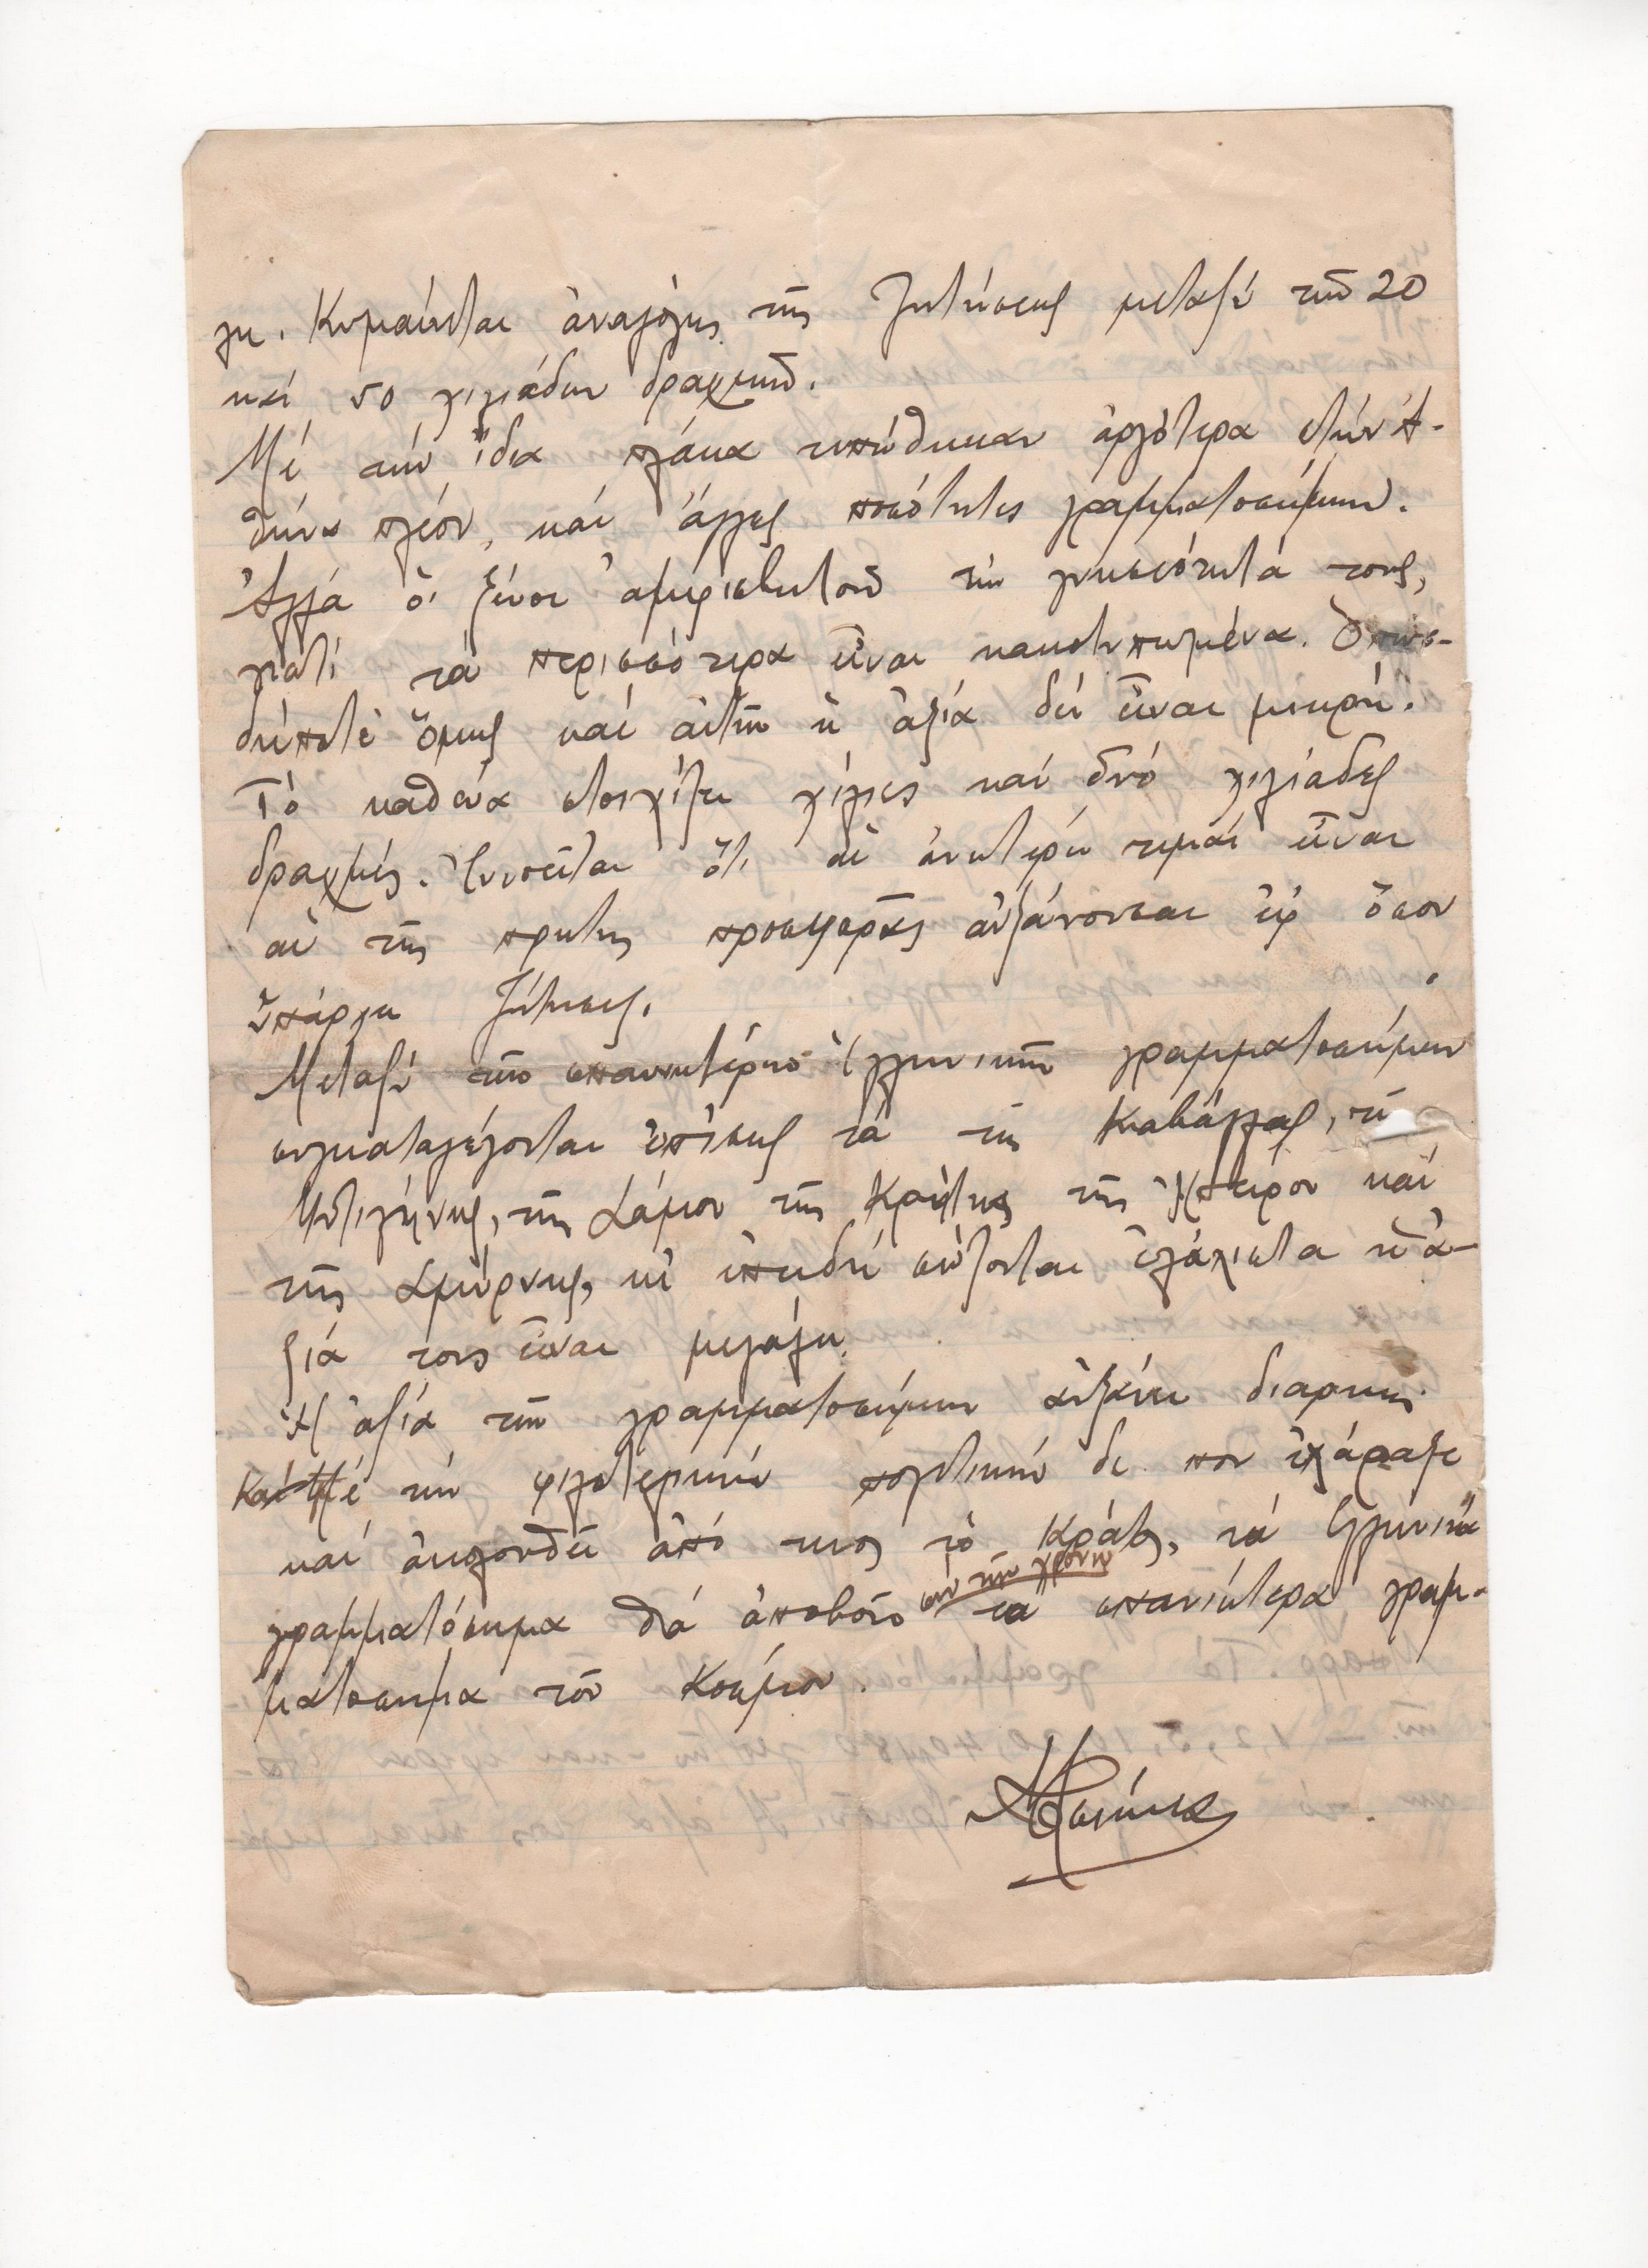 λη. Κυμαίνεται ἀναλόγως τῆς ζητήσεως μεταξύ τῶν 20
καί 50 χιλιάδων δραχμῶν.
Μέ τήν ἴδια πλάκα τυπώθηκαν ἀργότερα στήν Ἀ-
θήνα πλέον, καί ἄλλες ποσότητες γραμματοσήμων.
Ἀλλά οἱ ξένοι ἀμφισβητοῦν τήν γνησιότητά τους,
γιατί τά περισσότερα εἶναι κακοτυπωμένα. Ὁπωσ-
δήποτε ὅμως καί αὐτῶν ἡ ἀξία δέν εἶναι μικρή.
Τό καθένα στοιχίζει χίλιες καί δυό χιλιάδες
δραχμές. Ἐννοεῖται ὅτι αἱ ἀνωτέρω τιμαί εἶναι
αἱ τῆς πρώτης προσφορᾶς αὐξάνονται ἐφ ὅσον
ὑπάρχει ζήτησις.
Μεταξύ τῶν σπανιωτέρων Ἑλληνικῶν γραμματοσήμων
συγκαταλέγονται ἐπίσης τά τῆς Καβάλλας, τῆς
Μυτιλήνης, τῆς Σάμου τῆς Κρήτης τῆς Ἠπείρου καί
τῆς Σμύρνης, κι ἐπειδή σώζονται ἐλάχιστα ἡ ἀ-
ξία τους εἶναι μεγάλη.
Ἡ ἀξία τῶν γραμματοσήμων αὐξάνει διαρκῶς.
Καί μέ τήν φιλοτελικήν πολιτικήν δε που ἐχάραξε
καί ἀκολουθεῖ ἀπό τινος τό Κράτος, τά Ἑλληνικά
σύν τῶν χρόνω
γραμματόσημα θά ἀποβοῦν τά σπανιώτερα γραμ-
ματοσημα τοῦ Κόσμου.